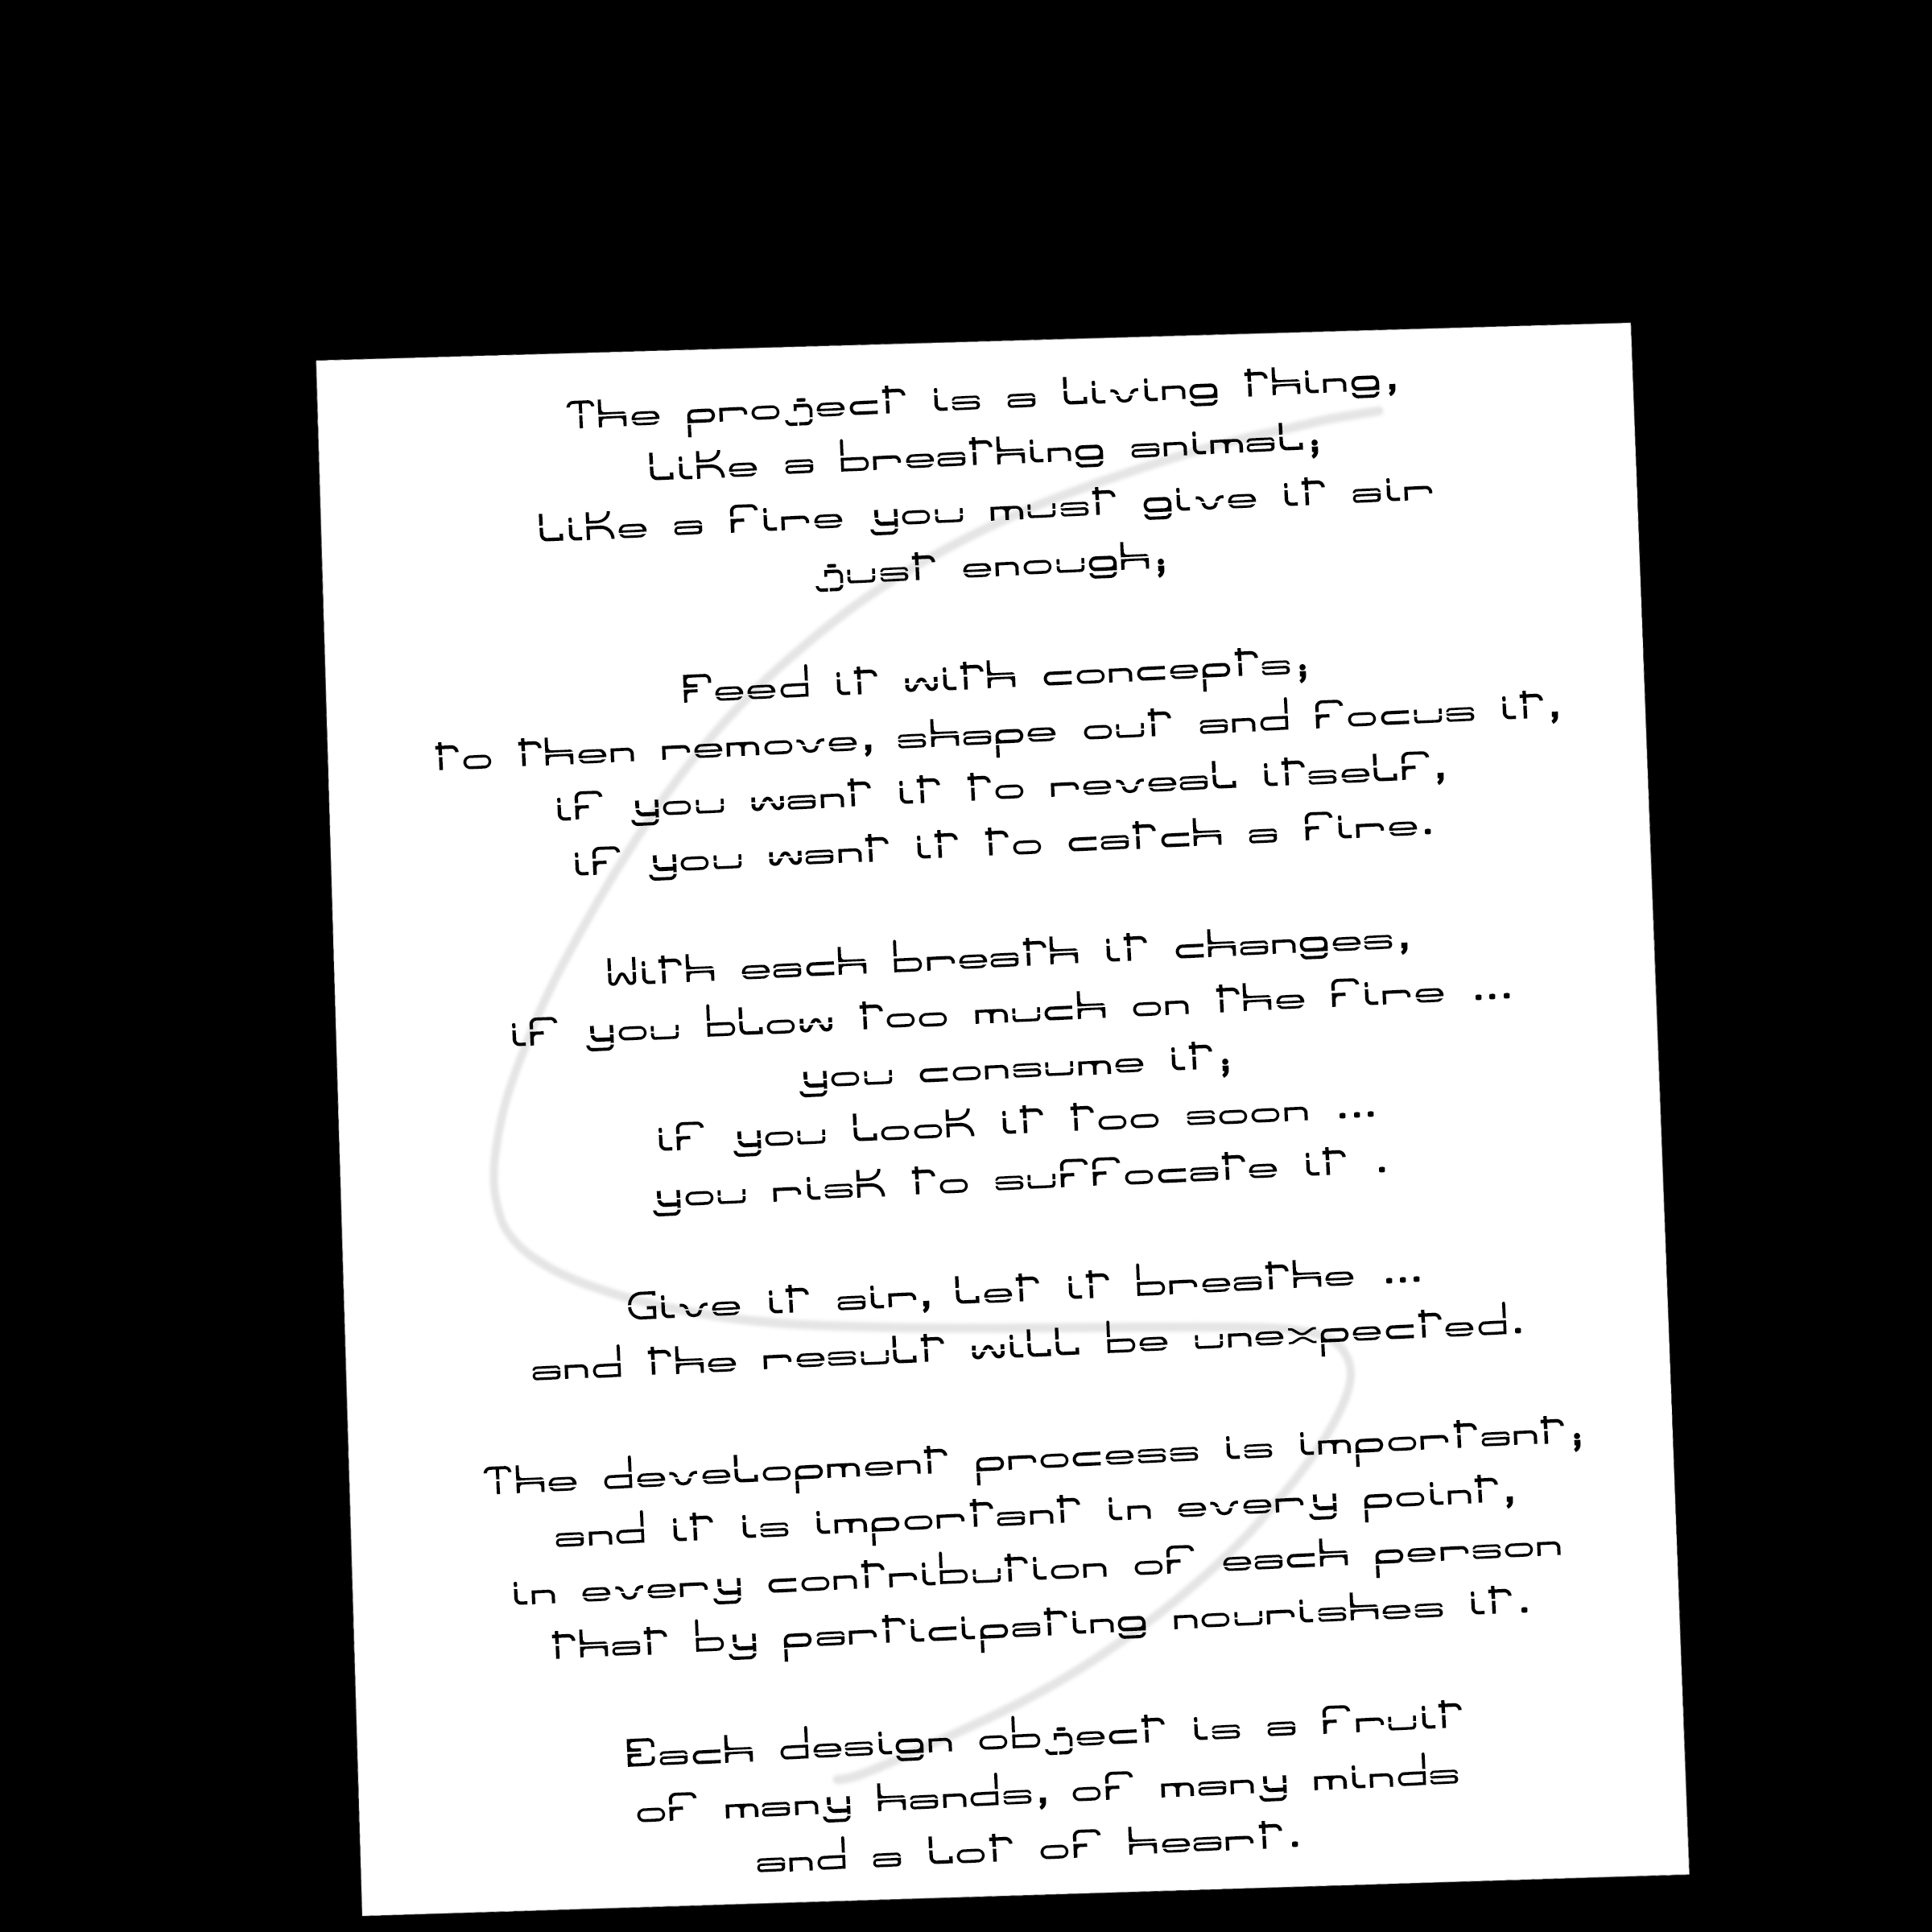 The project is a living thing,
like a breathing animal;
like a fire you must give it air
just enough;
Feed it with concepts;
to then remove, shape out and focus it,
if you want it to reveal itself,
if you want it to catch a fire.
With each breath it changes,
if you blow too much on the fire ...
you consume it;
if you look it too soon ...
you risk to suffocate it .
Give it air, let it breathe ...
and the result will be unexpected.
The development process is important;
and it is important in every point,
in every contribution of each person
that by participating nourishes it.
Each design object is a fruit
of many hands, of many minds
and a lot of heart.